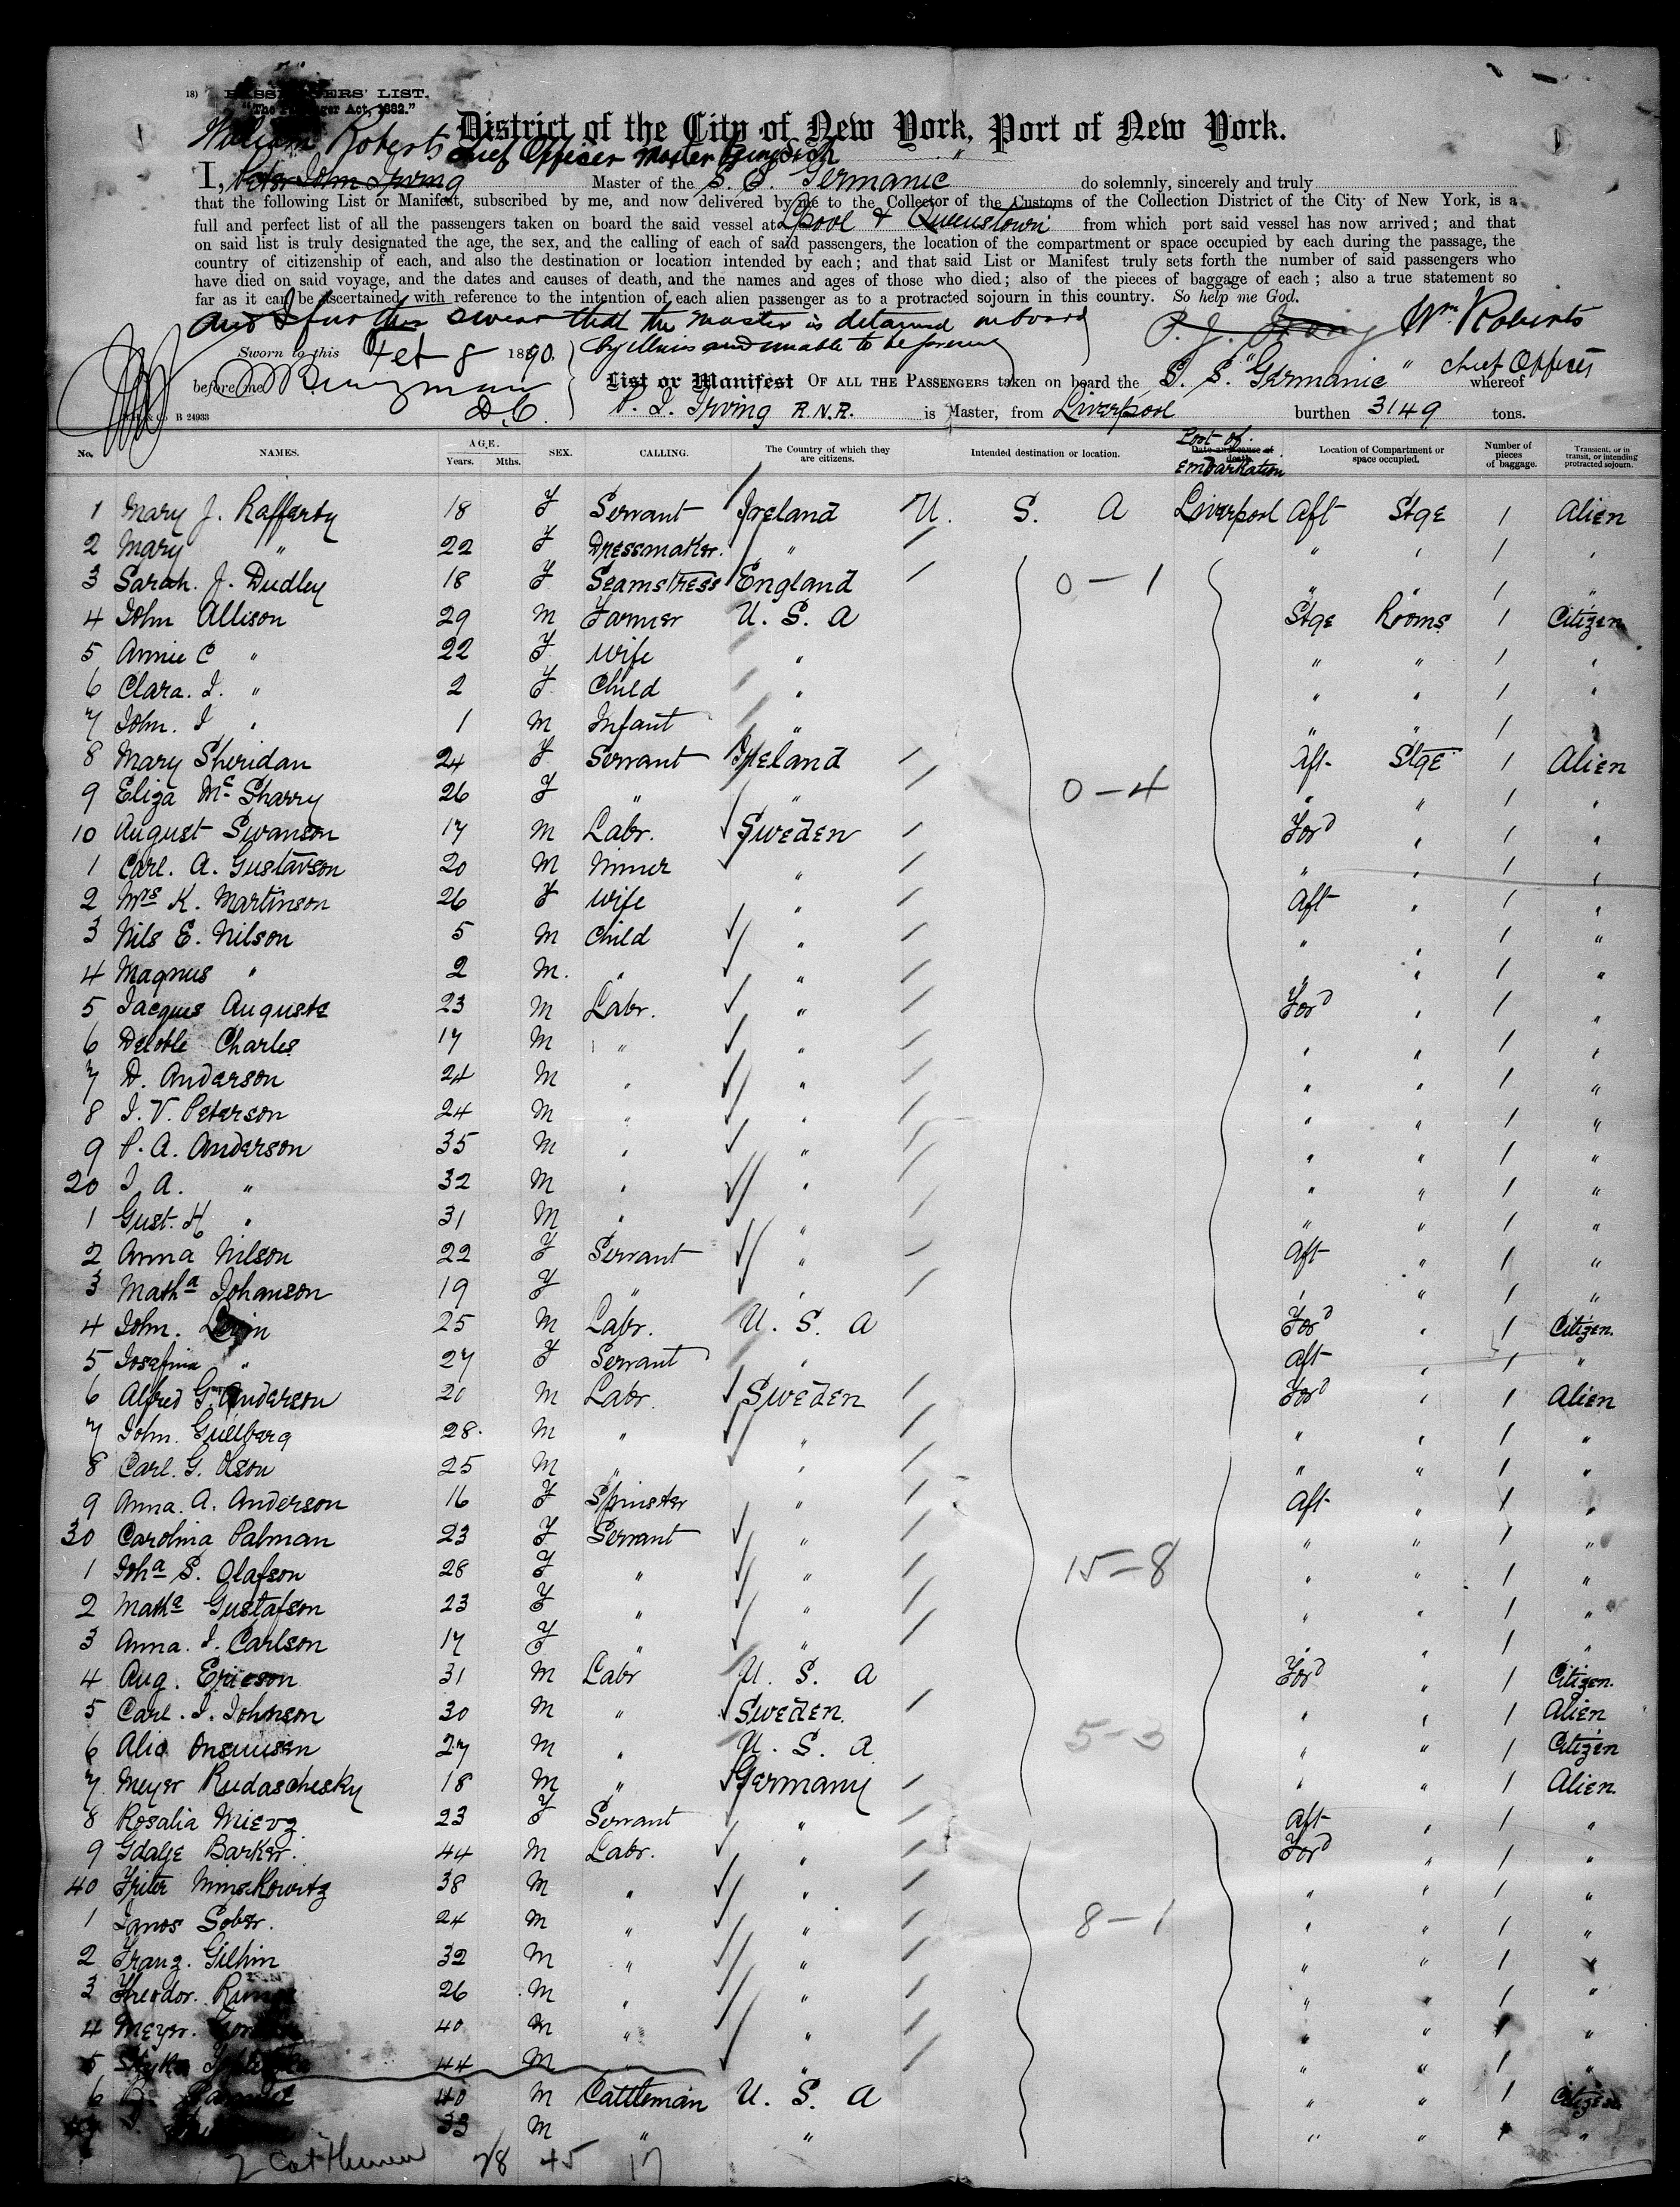 18) PASSENGERS' LIST.
"The Passenger Act, 1882."
District of the City of New York, Port of New York.
William Roberts Chief Officer Master being sick
I, Peter John Irving Master of the S. S. Germanic do solemnly, sincerely and truly
that the following List or Manifest, subscribed by me, and now delivered by me to the Collector of the Customs of the Collection District of the City of New York, is a
full and perfect list of all the passengers taken on board the said vessel at Lpool & Queenstown from which port said vessel has now arrived; and that
on said list is truly designated the age, the sex, and the calling of each of said passengers, the location of the compartment or space occupied by each during the passage, the
country of citizenship of each, and also the destination or location intended by each; and that said List or Manifest truly sets forth the number of said passengers who
have died on said voyage, and the dates and causes of death, and the names and ages of those who died; also of the pieces of baggage of each; also a true statement so
far as it can be ascertained with reference to the intention of each alien passenger as to a protracted sojourn in this country. So help me God.
and I further swear that the master is detained onboard P. J. Irving Wm Roberts
by illness and unable to be present
Sworn to this Feb 8 1890. Chief Officer
before me List or Manifest OF ALL THE PASSENGERS taken on board the S. S. "Germanic" whereof
B 24933 D.C. P. J. Irving R.N.R. is Master, from Liverpool burthen 3149 tons.
No. NAMES. AGE. Years. Mths. SEX. CALLING. The Country of which they are citizens. Intended destination or location. Date and cause of death. Port of Embarkation Location of Compartment or space occupied. Number of pieces of baggage. Transient, or in transit, or intending protracted sojourn.
1 Mary J. Rafferty 18 F Servant Ireland U. S. A Liverpool Aft Stge 1 Alien
2 Mary " 22 F Dressmaker. " " " 1 "
3 Sarah. J. Dudley 18 F Seamstress England 0-1 " " 1 "
4 John Allison 29 M Farmer U. S. A Stge Rooms 1 Citizen
5 Annie C " 22 F Wife " " " 1 "
6 Clara. J. " 2 F Child " " " 1 "
7 John. J " 1 M Infant " " " 1 "
8 Mary Sheridan 24 F Servant Ireland Aft Stge 1 Alien
9 Eliza McSharry 26 F " " 0-4 " " 1 "
10 August Swanson 17 M Labr. Sweden Ford " 1 "
1 Carl. A. Gustavson 20 M Miner " " " 1 "
2 Mrs K. Martinson 26 F Wife " Aft " 1 "
3 Nils E. Nilson 5 M Child " " " 1 "
4 Magnus " 2 M. " " " " 1 "
5 Jacques Auguste 23 M Labr. " Ford " 1 "
6 Charles 17 M " " " " 1 "
7 D. Anderson 24 M " " " " 1 "
8 J. V. Peterson 24 M " " " " 1 "
9 P. A. Anderson 35 M " " " " 1 "
20 J. A. " 32 M " " " " 1 "
1 Gust. H " 31 M " " " " 1 "
2 Anna Nilson 22 F Servant " Aft " 1 "
3 Matha Johanson 19 F " " " " 1 "
4 John. 25 M Labr. U. S. A Ford " 1 Citizen.
5 Josefina " 27 F Servant " Aft " 1 "
6 Alfred G. Anderson 20 M Labr. Sweden Ford " 1 Alien
7 John. Gullberg 28. M " " " " 1 "
8 Carl. G. Olson 25 M " " " " 1 "
9 Anna. A. Anderson 16 F Spinster " Aft " 1 "
30 Carolina Palman 23 F Servant " " " 1 "
1 Joha S. Olafson 28 F " " 15-8 " " 1 "
2 Matha Gustafson 23 F " " " " 1 "
3 Anna. J. Carlson 17 F " " " " 1 "
4 Aug. Ericson 31 M Labr U. S. A Ford " 1 Citizen.
5 Carl. J. Johnson 30 M " Sweden. " " 1 Alien
6 27 M " U. S. A 5-3 " " 1 Citizen
7 Meyer Rudaschesky 18 M " Germany " " 1 Alien.
8 Rosalia 23 F Servant " Aft " 1 "
9 Gdalge Barker. 44 M Labr. " Ford " 1 "
40 Minskowitz 38 M " " " " 1 "
1 Janos Sober. 24 M " " 8-1 " " 1 "
2 Franz. Gilhin 32 M " " " " 1 "
3 Theodor. 26 M " " " " 1 "
4 Meyer. 40 M " " " " 1 "
5 44 M " " " " 1 "
6 40 M Cattleman U. S. A " " 1 Citizen
33 M " " " " 1 "
2 Cattlemen 28 45 17